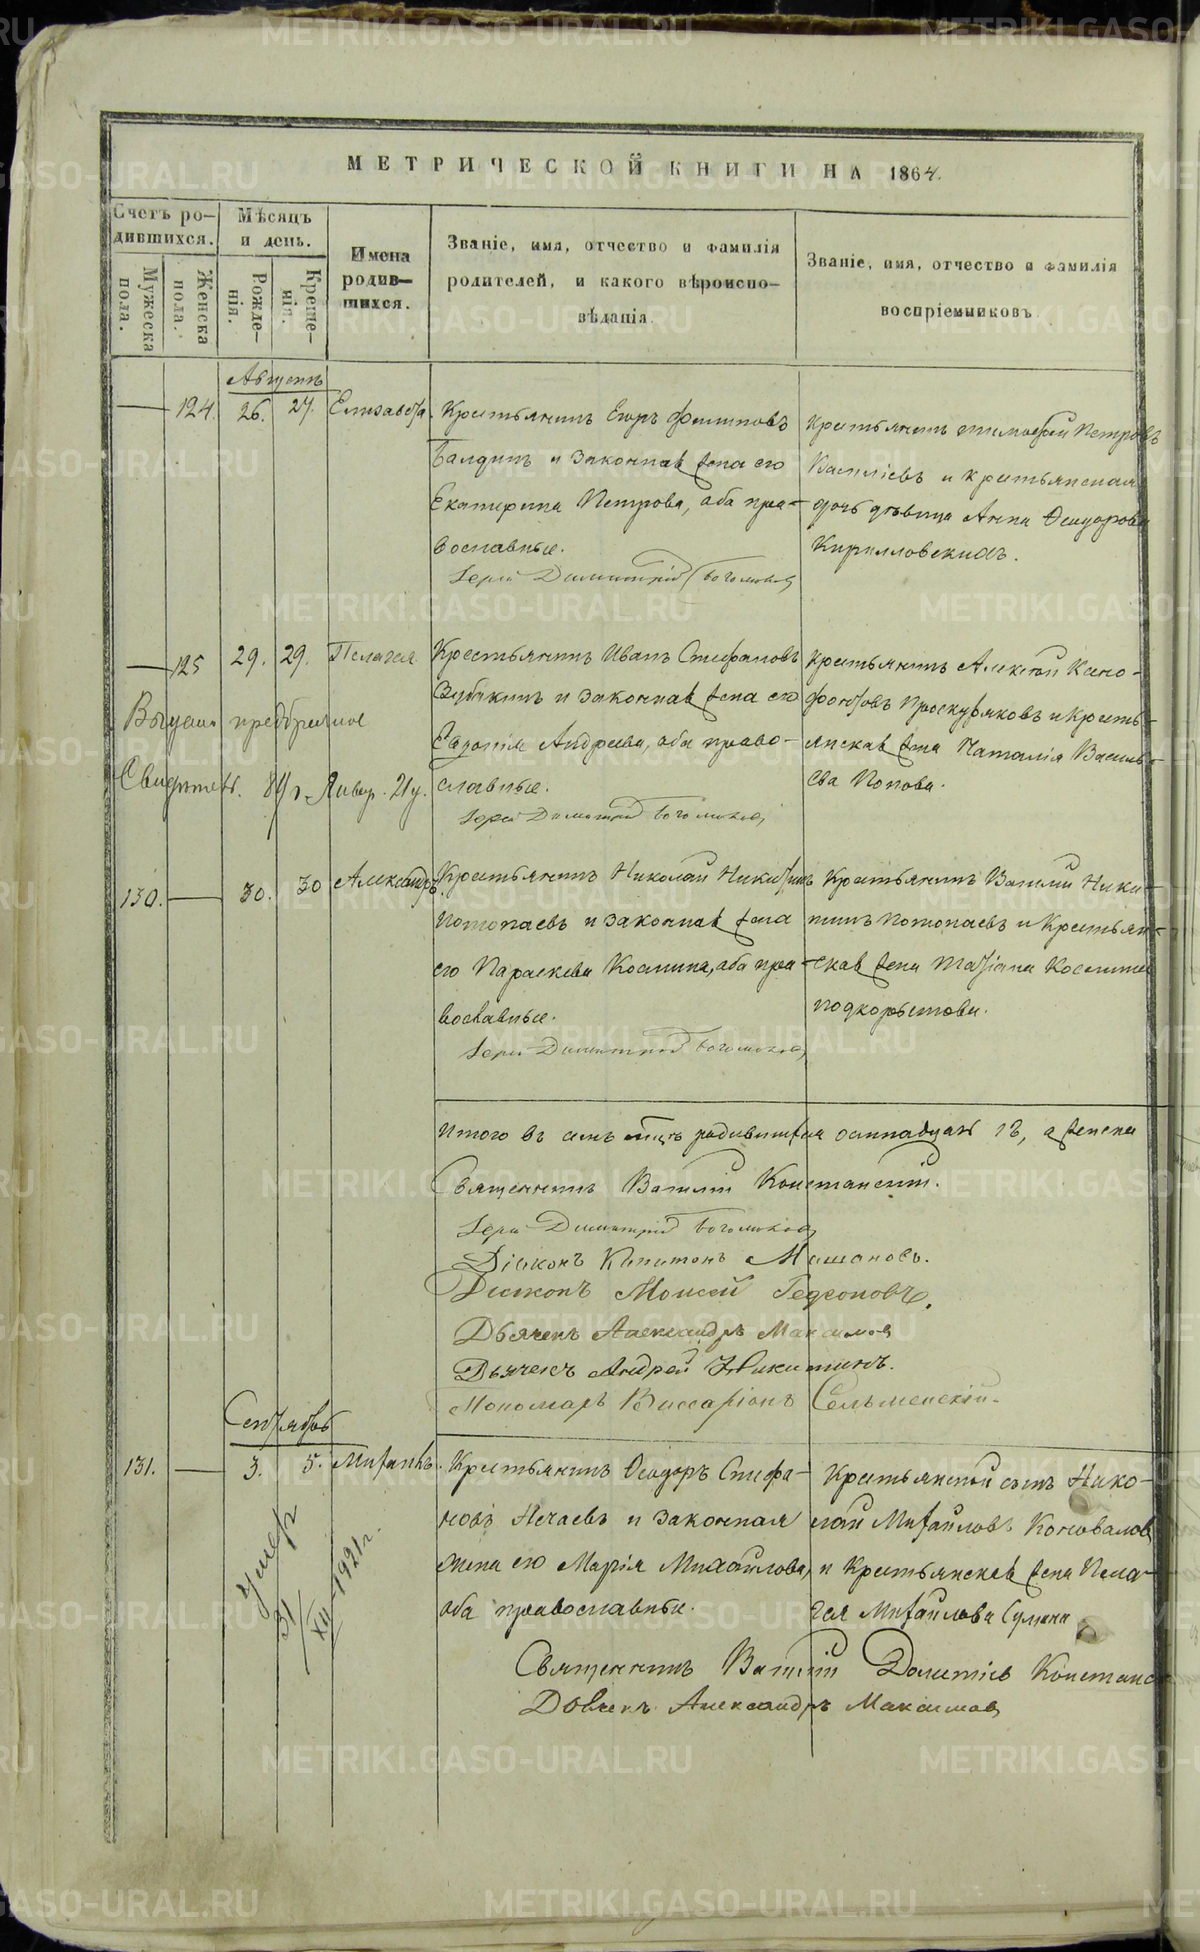 МЕТРИЧЕСКОЙ КНИГИ НА 1864.
Счетъ ро-
дившихся.
Мужеска
пола.
Женска
пола.
Мѣсяцъ
и день.
Рожде-
нія.
Креще-
нія.
Имена
родив-
шихся.
Званіе, имя, отчество и фамилія
родителей, и какого вѣроиспо-
вѣданія.
Званіе, имя, отчество и фамилія
воспріемниковъ.
Августъ
124. 26. 27. Елисавета.
Крестьянинъ Егоръ Филиповъ
Балдинъ и законная жена его
Екатерина Петрова, оба пра-
вославные.
Іерей Димитрій Богомолов
Крестьянинъ Тимофей Петровъ
Василіевъ и крестьянская
дочь дѣвица Анна Ѳеодорова
Кирилловскихъ.
125 29. 29. Пелагея.
Крестьянинъ Иванъ Стефановъ
Зубакинъ и законная жена его
Евдокія Андреева, оба право-
славные.
Іерей Димитрій Богомолов
Крестьянинъ Алексѣй Ксено-
фонтовъ Проскуряковъ и кресть-
янская жена Наталія Василь-
ева Попова.
Выдано предбрачное
Свидѣтел. 84 г. Январ. 21 д.
130. 30. 30 Александръ.
Крестьянинъ Николай Никитинъ
Потопаевъ и законная жена
его Параскева Космина, оба пра-
вославные.
Іерей Димитрій Богомолов
Крестьянинъ Василій Ники-
тинъ Потопаевъ и Крестьян-
ская жена Татіана Космина
Подкорытова.
Итого въ семъ мѣсяцѣ родившихся осмнадцать 18, а женска
Священникъ Василій Констанскій.
Іерей Димитрій Богомолов
Діаконъ Капитонъ
Діаконъ Моисей Гедеоновъ.
Дьячекъ Александръ Максимов
Дьячекъ Андрей Никитинъ.
Пономарь Виссаріонъ
Сентябрь
131. 3. 5. Михаилъ.
Крестьянинъ Ѳеодоръ Стефа-
новъ Нечаевъ и законная
жена его Марія Михайлова,
оба православные.
Крестьянской сынъ Нико-
лай Михайловъ Коновалов
и Крестьянская жена Пела-
гея Михайлова Сумина.
умер
31/XII 1921 г.
Священникъ Василій Констанс
Дьячекъ Александръ Максимов